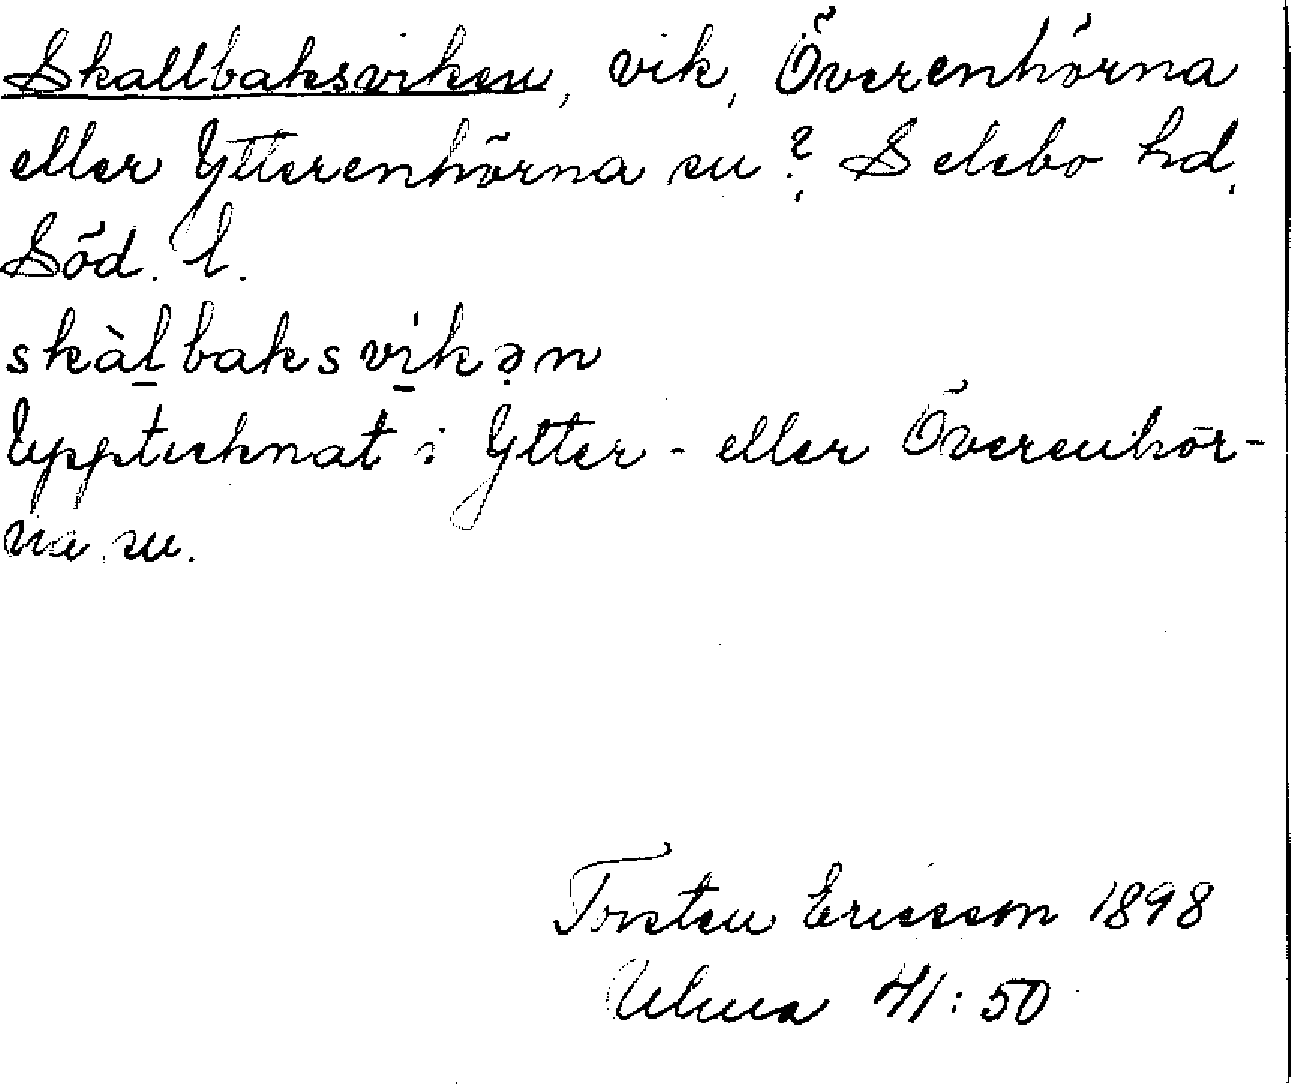 Skallbaksviken, vik, Överenhörna
eller Ytterenhörna sn?, Selebo hd,
Söd. l.
skàl̠baksvi̠kən
Upptecknat i Ytter- eller Överenhör-
na sn.
Torsten Ericsson 1898
Ulma 41:50